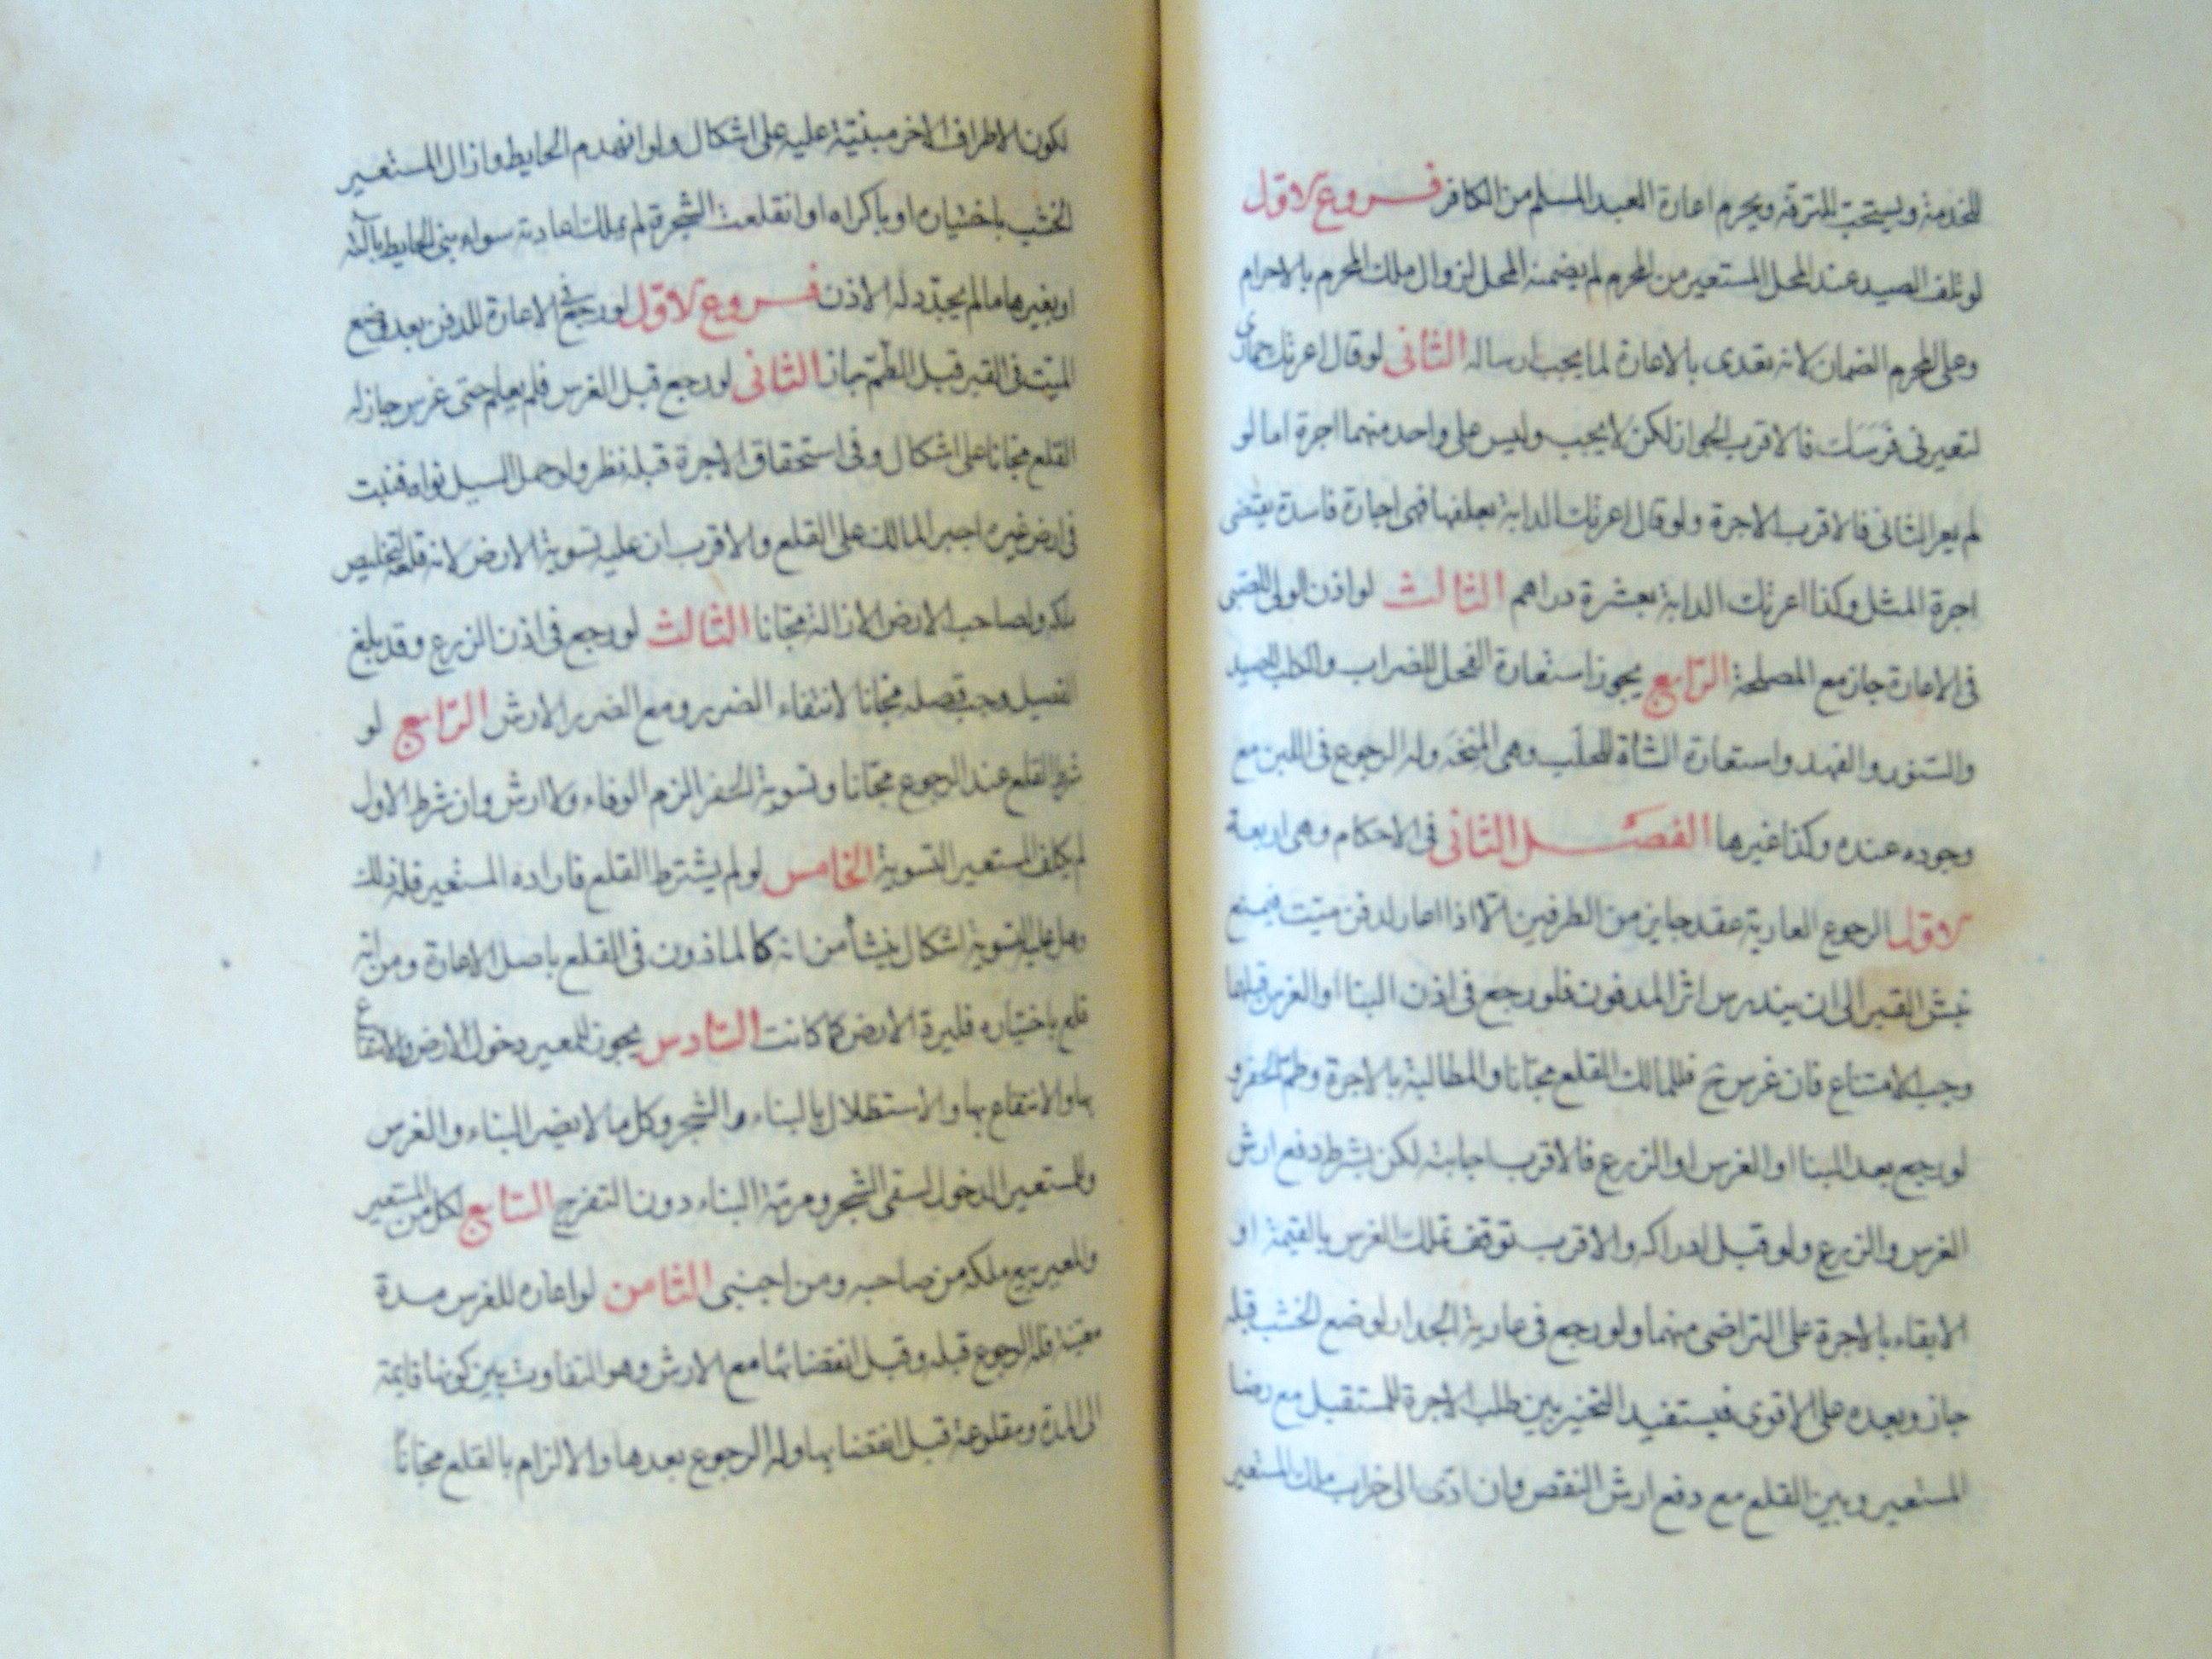 للخدمة ويستحب للترفه ويحرم اعارة العبد المسلم من الكافر فروع الاول
لو تلف الصيد عند المحل المستعير من المحرم لم يضمنه المحل لزوال ملك المحرم بالاحرام
وعلى المحرم الضمان لانه تعدى بالاعارة لما يجب ارساله الثانى لو قال اعرتك حمارى
لتعيرنى فرسك فالاقرب الجواز لكن لا يجب وليس على واحد منهما اجرة اما لو
لم يعر الثانى فالاقرب الاجرة ولو قال اعرتك الدابة بعلفها فهى اجارة فاسدة يقتضى
اجرة المثل وكذا اعرتك الدابة بعشرة دراهم الثالث لو اذن الولى للصبى
فى الاعارة جاز مع المصلحة الرابع يجوز استعارة الفحل للضراب والكلب للصيد
والسنور والفهد واستعارة الشاة للحلب وهى المنحة وله الرجوع فى اللبن مع
وجوده عنده وكذا غيرها الفصل الثانى فى الاحكام وهى اربعة
الاول الرجوع العارية عقد جايز من الطرفين الا اذا اعار لدفن ميت فيمنع
نبش القبر الى ان يندرس اثر المدفون فلو رجع فى اذن البنا او الغرس قبلها
وجب الامتناع فان غرس ح فللمالك القلع مجانا والمطالبة بالاجرة وطم الحفر و
لو رجع بعد البنا او الغرس او الزرع فالاقرب اجابته لكن بشرط دفع ارش
الغرس والزرع ولو قبل ادراكه والاقرب توقف تملك الغرس بالقيمة او
الابقاء بالاجرة على التراضى منهما ولو رجع فى عارية الجدار لوضع الخشب قبله
جاز وبعده على الاقوى فيستفيد التخير بين طلب الاجرة للمستقبل مع رضا
المستعير وبين القلع مع دفع ارش النقص وان ادى الى خراب ملك المستعير
لكون الاطراف الاخر مبنية عليه على اشكال ولو انهدم الحايط وازال المستعير
الخشب باختياره او باكراه او انقلعت الشجرة لم يملك اعادته سواء بنى الحايط بآلته
او بغيرها ما لم يجدد له الاذن فروع الاول لو رجع فى الاعارة للدفن بعد وضع
الميت فى القبر قبل الطم جاز الثانى لو رجع قبل الغرس فلم يعلم حتى غرس جاز له
القلع مجانا على اشكال وفى استحقاق الاجرة قبله نظر ولو حمل السيل نواه فنبت
فى ارض غيره اجبر المالك على القلع والاقرب ان عليه تسوية الارض لانه قلعه لتخليص
ملكه ولصاحب الارض الازالة مجانا الثالث لو رجع فى اذن الزرع وقد بلغ
القصيل وجب قصله مجانا لانتفاء الضرر ومع الضرر الارش الرابع لو
شرط القلع عند الرجوع مجانا وتسوية الحفر الزم الوفاء ولا ارش وان شرط الاول
لم يكلف المستعير التسوية الخامس لو لم يشترط القلع فاراده المستعير فله ذلك
وهل عليه التسوية اشكال ينشأ من انه كالماذون فى القلع باصل الاعارة ومن انه
قلع باختياره فليرد الارض كما كانت السادس يجوز للمعير دخول الارض والانتفاع
بها والانتفاع بها والاستظلال بالبناء والشجر وكل ما لا يضر البناء والغرس
وللمستعير الدخول لسقى الشجر ومرمة البناء دون التفرج السابع لكل من المستعير
والمعير بيع ملكه من صاحبه ومن اجنبى الثامن لو اعاره للغرس مدة
معينة فله الرجوع قبله وقبل انقضائها مع الارش وهو التفاوت بين كونها قايمة
الى المدة ومقلوعة قبل انقضايها وله الرجوع بعدها والالزام بالقلع مجاناً